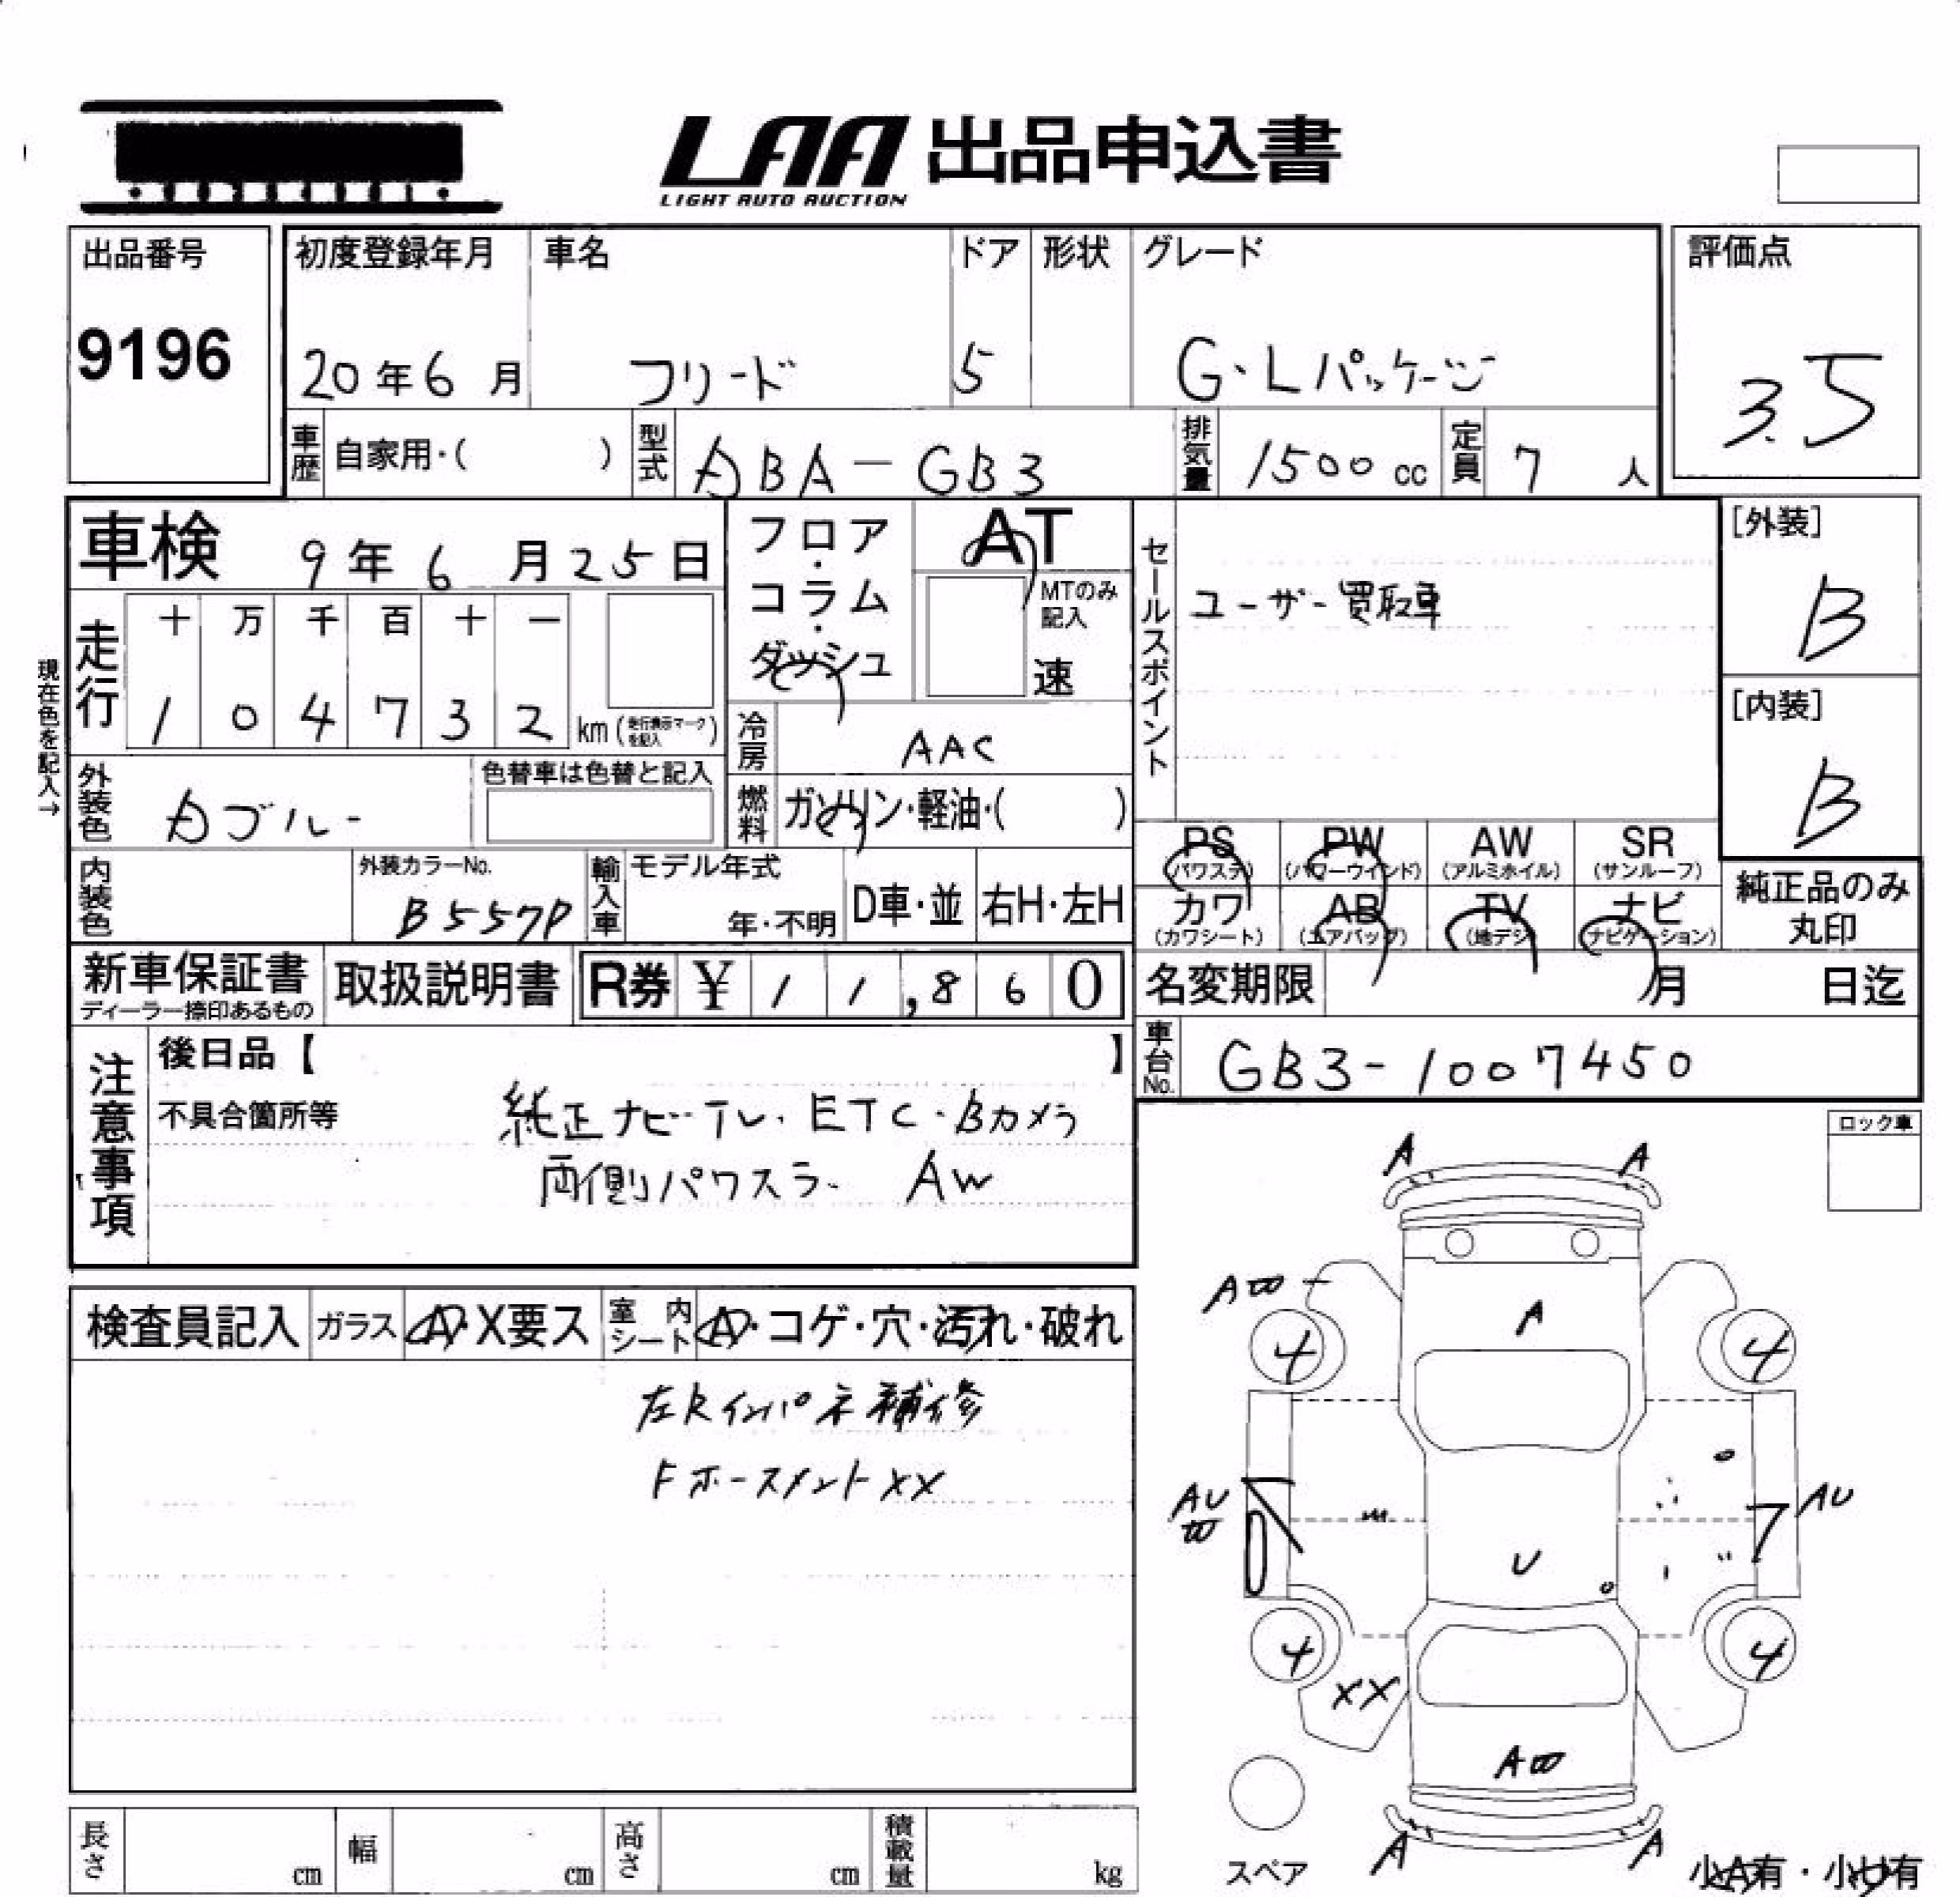 LAA 出品申込書
LIGHT AUTO AUCTION
出品番号
9196
初度登録年月
20年6月
車名
フリード
ドア
5
形状
グレード
G・Lパッケージ
評価点
3.5
車歴
自家用・( )
型式
DBA-GB3
排気量
1500 cc
定員
7 人
車検 9年6月25日
フロア・コラム・ダッシュ
AT
MTのみ記入
速
セールスポイント
ユーザー買取車
[外装]
B
[内装]
B
現在色を記入→
走行
十 万 千 百 十 一
1 0 4 7 3 2 km (走行表示マークを記入)
冷房
AAC
外装色
ブルー
色替車は色替と記入
燃料
ガソリン・軽油・( )
PS (パワステ)
PW (パワーウインド)
AW (アルミホイル)
SR (サンルーフ)
カワ (カワシート)
AB (エアバッグ)
TV (地デジ)
ナビ (ナビゲーション)
純正品のみ丸印
内装色
外装カラーNo.
B557P
輸入車
モデル年式
年・不明
D車・並
右H・左H
新車保証書
ディーラー捺印あるもの
取扱説明書
R券 ¥ 11,860
名変期限
月 日迄
車台No.
GB3-1007450
注意事項
後日品【 】
不具合箇所等
純正ナビ・テレ・ETC・Bカメラ
両側パワスラ AW
ロック車
検査員記入
ガラス
A・X要ス
室内シート
A・コゲ・穴・汚れ・破れ
左Rインパネ補修
Fホースメント XX
A A
A
A
4 4
AU
AU
U
4 4
XX
A
A A
スペア
小A有・小U有
長さ cm
幅 cm
高さ cm
積載量 kg